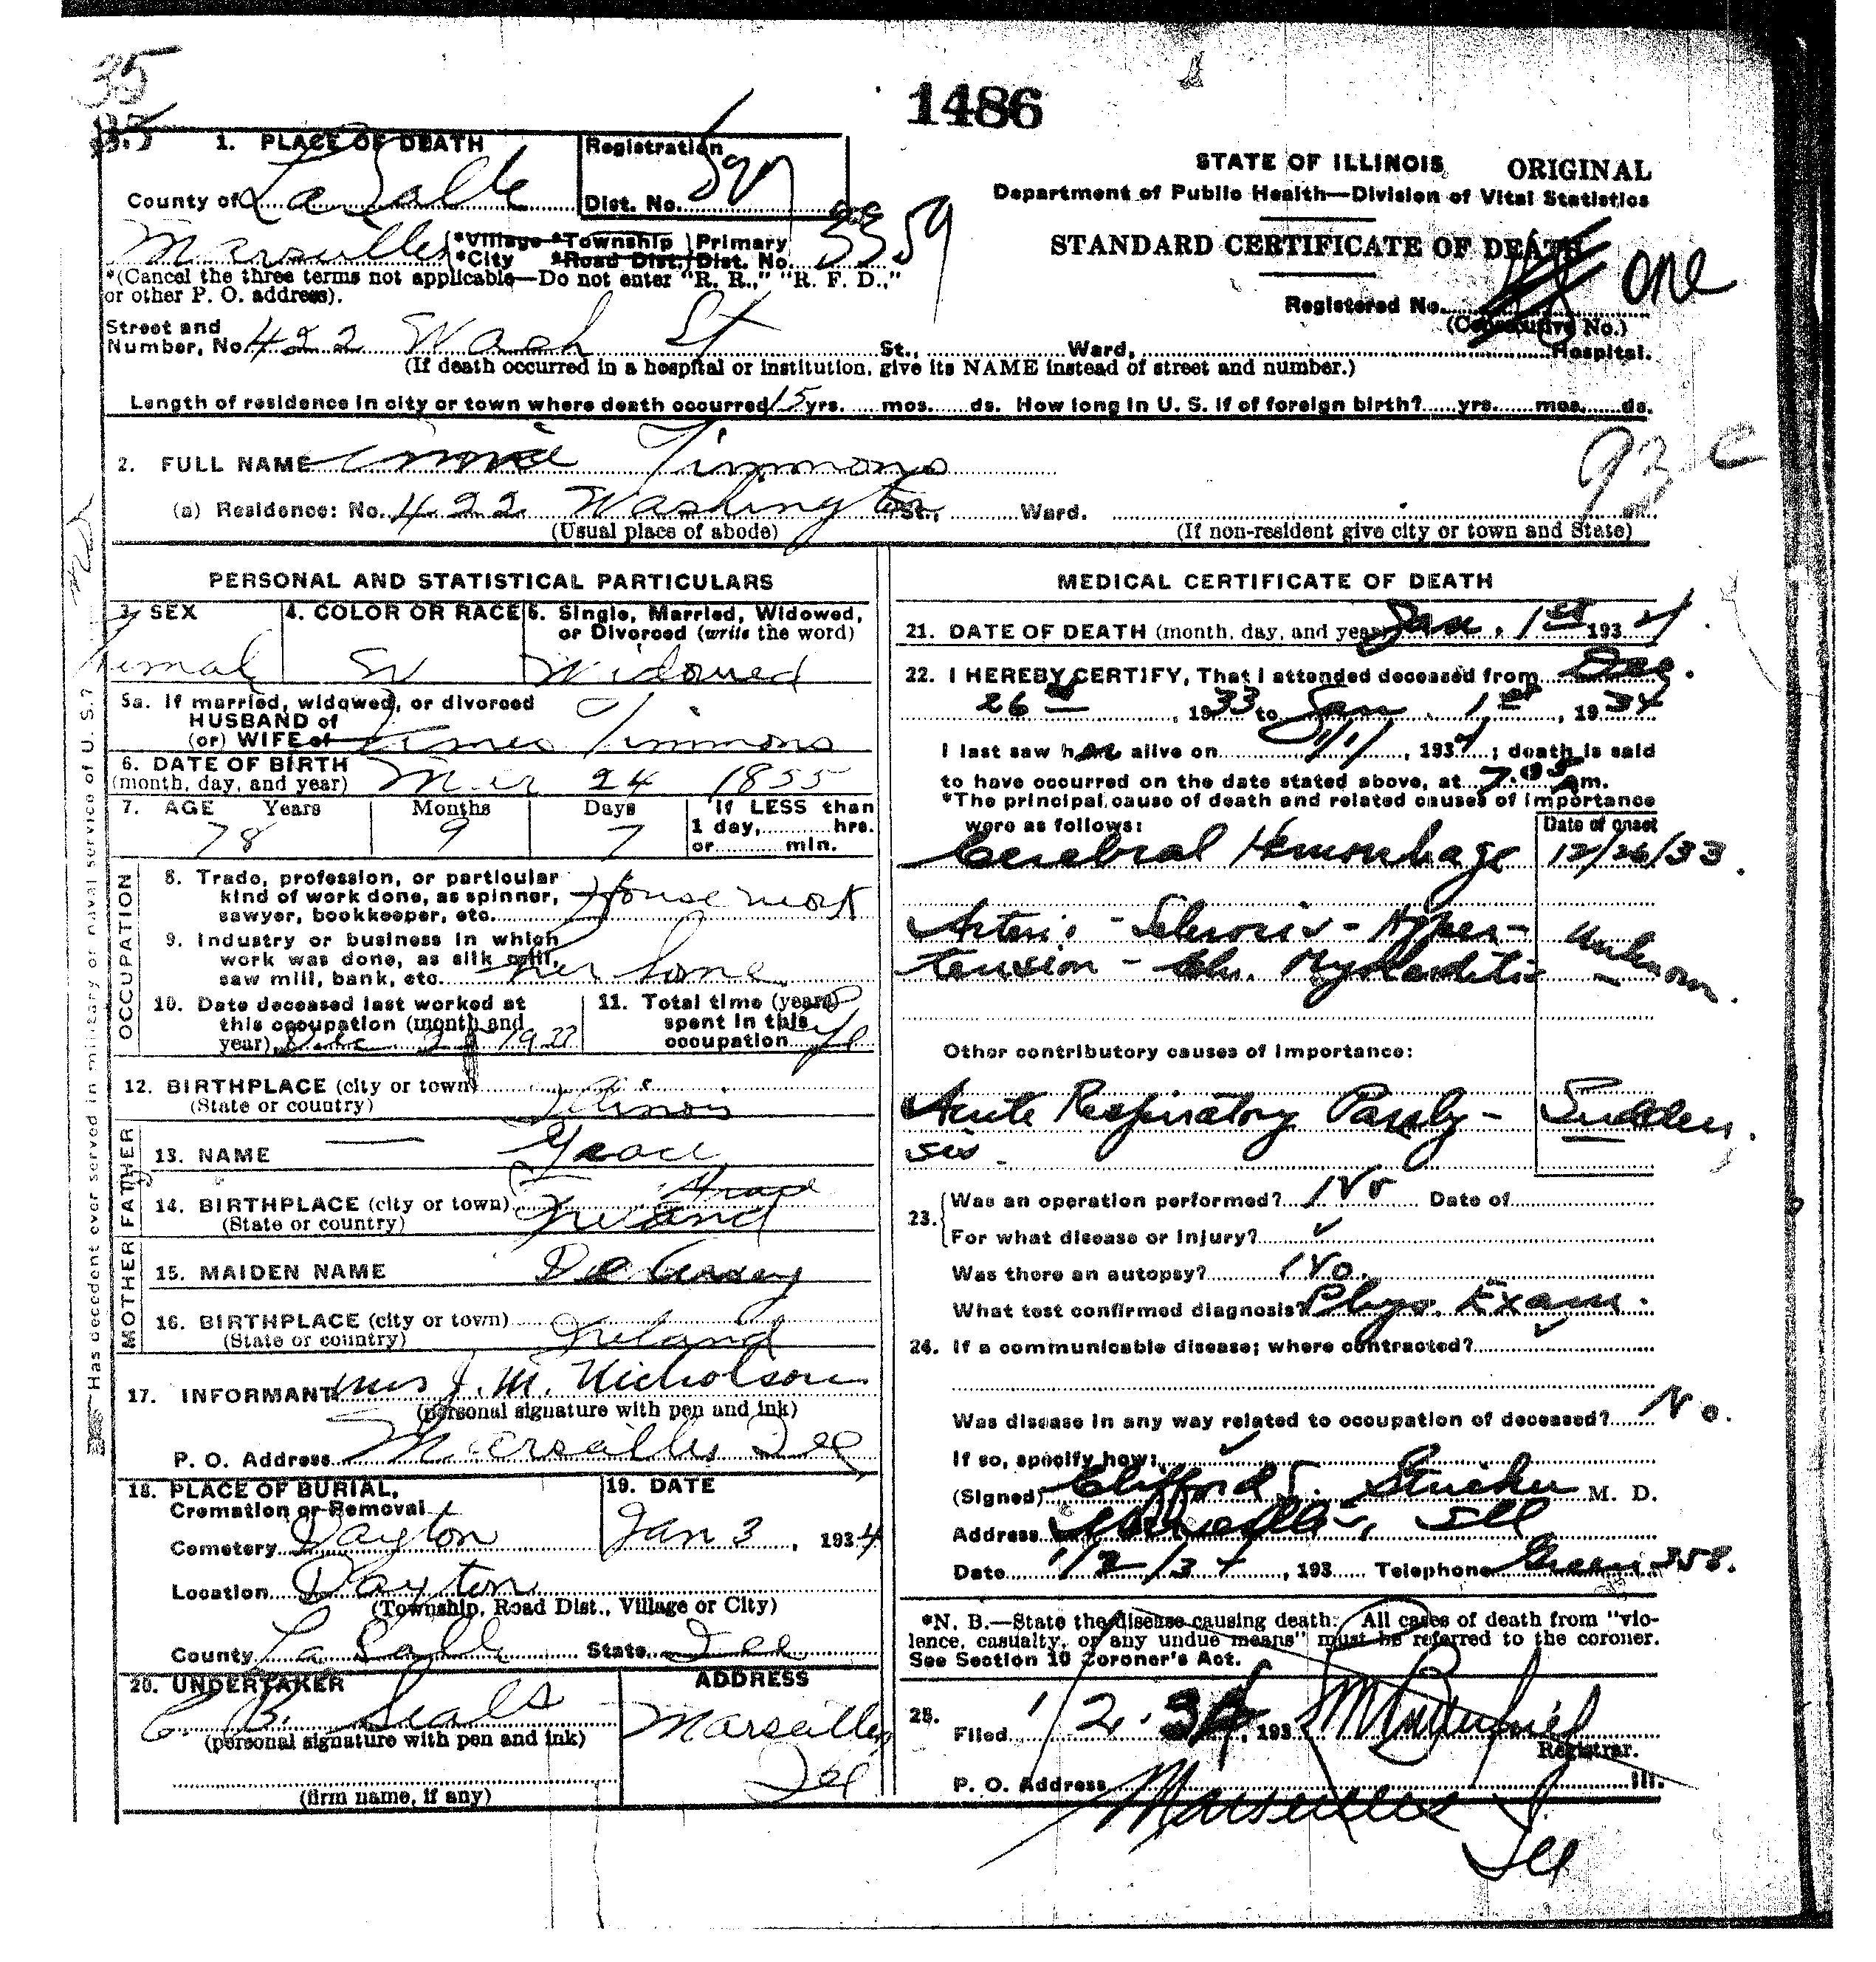 35
1486
1. PLACE OF DEATH
Registration
Dist. No.
County of LaSalle
STATE OF ILLINOIS ORIGINAL
Department of Public Health—Division of Vital Statistics
STANDARD CERTIFICATE OF DEATH
Marseilles *Village *Township Primary
*City *Road Dist. Dist. No. 3359
*(Cancel the three terms not applicable—Do not enter "R. R.," "R. F. D.,"
or other P. O. address).
Registered No. one
(Consecutive No.)
Street and
Number, No. 422 Wash St St., Ward, Hospital.
(If death occurred in a hospital or institution, give its NAME instead of street and number.)
Length of residence in city or town where death occurred 15 yrs. mos. ds. How long in U. S. if of foreign birth? yrs. mos. ds.
2. FULL NAME Timmons
93 c
(a) Residence: No. 422 Washington St., Ward.
(Usual place of abode) (If non-resident give city or town and State)
Has decedent ever served in military or naval service of U. S.?
PERSONAL AND STATISTICAL PARTICULARS
3. SEX 4. COLOR OR RACE 5. Single, Married, Widowed,
or Divorced (write the word)
Femal W Widowed
5a. If married, widowed, or divorced
HUSBAND of
(or) WIFE of James Timmons
6. DATE OF BIRTH
(month, day, and year) Mar 24 1855
7. AGE Years Months Days If LESS than
1 day, hrs.
or min.
78 9 7
OCCUPATION
8. Trade, profession, or particular
kind of work done, as spinner,
sawyer, bookkeeper, etc. House work
9. Industry or business in which
work was done, as silk mill,
saw mill, bank, etc. her home
10. Date deceased last worked at
this occupation (month and
year) Dec
11. Total time (years)
spent in this
occupation
12. BIRTHPLACE (city or town)
(State or country) Illinois
FATHER
13. NAME — Grace
14. BIRTHPLACE (city or town)
(State or country) Ireland
MOTHER
15. MAIDEN NAME
16. BIRTHPLACE (city or town)
(State or country) Ireland
17. INFORMANT Mrs J. M. Nicholson
(personal signature with pen and ink)
P. O. Address Marseilles Ill
18. PLACE OF BURIAL,
Cremation or Removal
19. DATE
Cemetery Dayton Jan 3, 1934
Location Dayton
(Township, Road Dist., Village or City)
County La Salle State Ill
20. UNDERTAKER ADDRESS
C. B. Seals Marseilles
(personal signature with pen and ink)
Ill
(firm name, if any)
MEDICAL CERTIFICATE OF DEATH
21. DATE OF DEATH (month, day, and year) Jan. 1st 1934
22. I HEREBY CERTIFY, That I attended deceased from Dec.
26th, 1933 to Jan. 1st, 1934
I last saw her alive on 1/1/, 1934; death is said
to have occurred on the date stated above, at 7:05 Am.
*The principal cause of death and related causes of importance
were as follows: Date of onset
Cerebral Hemorrhage 12/26/33.
Arterio-Sclerosis - Hyper-
tension - Chr. Myocarditis Unknown.
Other contributory causes of importance:
Acute Respiratory Paraly- Sudden.
sis.
23. Was an operation performed? No Date of
For what disease or injury? ✓
Was there an autopsy? No.
What test confirmed diagnosis? Phys. Exam.
24. If a communicable disease; where contracted? ✓
Was disease in any way related to occupation of deceased? No.
If so, specify how: ✓
(Signed) Clifford M. D.
Address Marseilles, Ill
Date 1/2/34, 193 Telephone Green 358.
*N. B.—State the disease causing death. All cases of death from "vio-
lence, casualty, or any undue means" must be referred to the coroner.
See Section 10 Coroner's Act.
25. Filed 1/2.34, 193
Registrar.
P. O. Address Marseilles Ill.
Ill